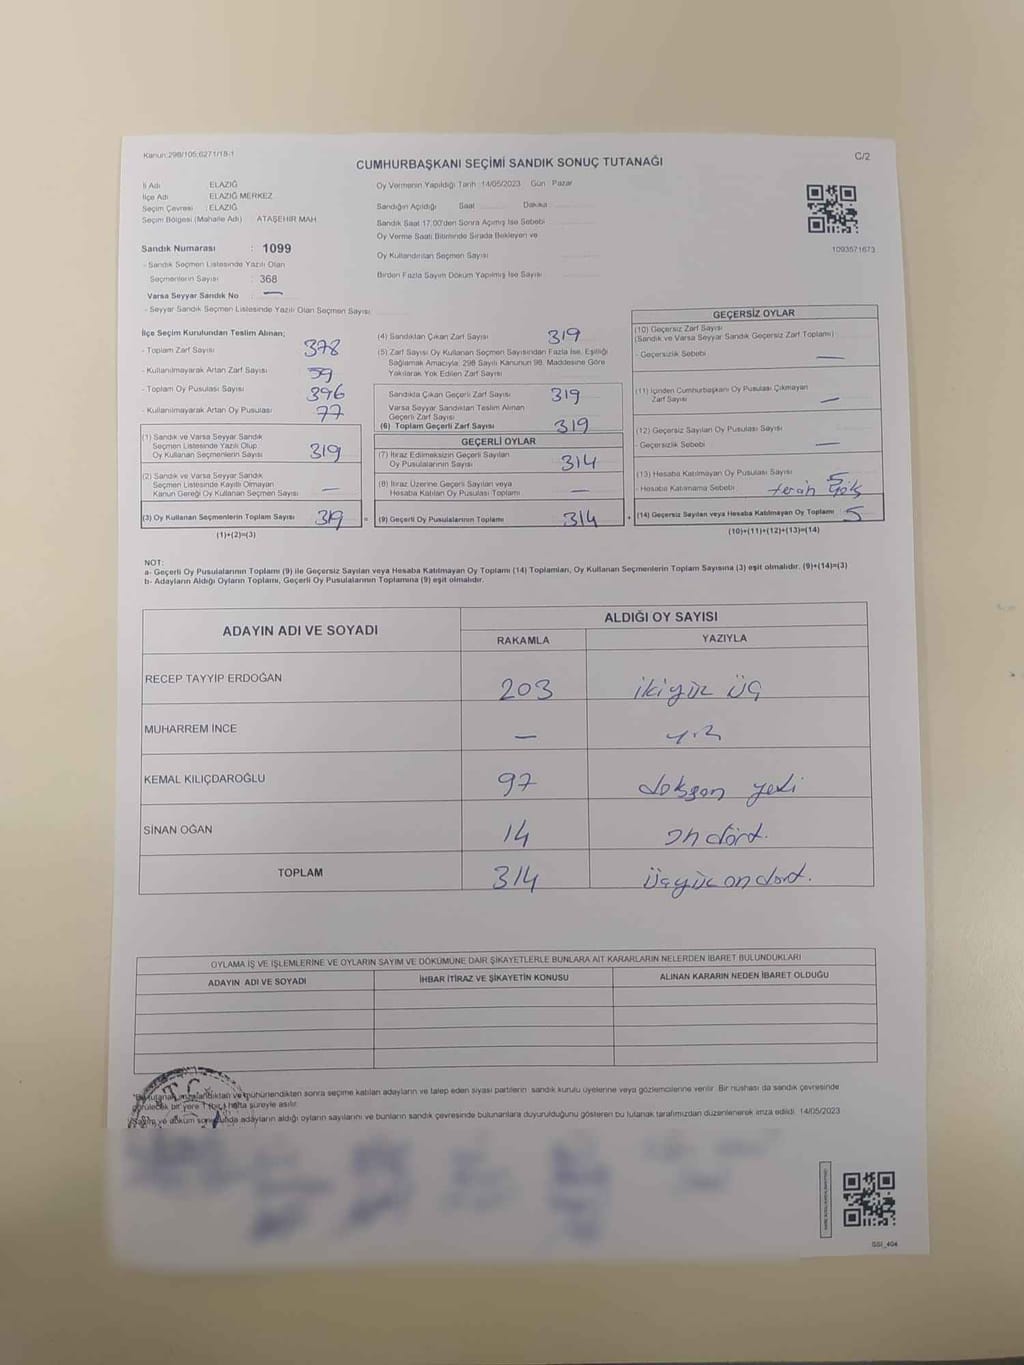 Kanun:298/105;6271/18-1
C/2
CUMHURBAŞKANI SEÇİMİ SANDIK SONUÇ TUTANAĞI
İl Adı : ELAZIĞ
İlçe Adı : ELAZIĞ MERKEZ
Seçim Çevresi : ELAZIĞ
Seçim Bölgesi (Mahalle Adı) : ATAŞEHİR MAH.
Sandık Numarası : 1099
- Sandık Seçmen Listesinde Yazılı Olan
Seçmenlerin Sayısı : 368
Varsa Seyyar Sandık No : —
- Seyyar Sandık Seçmen Listesinde Yazılı Olan Seçmen Sayısı:
Oy Vermenin Yapıldığı Tarih :14/05/2023 Gün : Pazar
Sandığın Açıldığı Saat Dakika
Sandık Saat 17.00'den Sonra Açılmış İse Sebebi
Oy Verme Saati Bitiminde Sırada Bekleyen ve
Oy Kullandırılan Seçmen Sayısı
Birden Fazla Sayım Döküm Yapılmış İse Sayısı
1093571673
İlçe Seçim Kurulundan Teslim Alınan;
- Toplam Zarf Sayısı 378
- Kullanılmayarak Artan Zarf Sayısı 59
- Toplam Oy Pusulası Sayısı 396
- Kullanılmayarak Artan Oy Pusulası 77
(1) Sandık ve Varsa Seyyar Sandık
Seçmen Listesinde Yazılı Olup
Oy Kullanan Seçmenlerin Sayısı 319
(2) Sandık ve Varsa Seyyar Sandık
Seçmen Listesinde Kayıtlı Olmayan
Kanun Gereği Oy Kullanan Seçmen Sayısı —
(3) Oy Kullanan Seçmenlerin Toplam Sayısı 319
(1)+(2)=(3)
(4) Sandıktan Çıkan Zarf Sayısı 319
(5) Zarf Sayısı Oy Kullanan Seçmen Sayısından Fazla İse, Eşitliği
Sağlamak Amacıyla; 298 Sayılı Kanunun 98. Maddesine Göre
Yakılarak Yok Edilen Zarf Sayısı
Sandıkta Çıkan Geçerli Zarf Sayısı 319
Varsa Seyyar Sandıktan Teslim Alınan
Geçerli Zarf Sayısı
(6) Toplam Geçerli Zarf Sayısı 319
GEÇERLİ OYLAR
(7) İtiraz Edilmeksizin Geçerli Sayılan
Oy Pusulalarının Sayısı 314
(8) İtiraz Üzerine Geçerli Sayılan veya
Hesaba Katılan Oy Pusulası Toplamı —
= (9) Geçerli Oy Pusulalarının Toplamı 314
GEÇERSİZ OYLAR
(10) Geçersiz Zarf Sayısı
(Sandık ve Varsa Seyyar Sandık Geçersiz Zarf Toplamı)
- Geçersizlik Sebebi —
(11) İçinden Cumhurbaşkanı Oy Pusulası Çıkmayan
Zarf Sayısı —
(12) Geçersiz Sayılan Oy Pusulası Sayısı
- Geçersizlik Sebebi —
(13) Hesaba Katılmayan Oy Pusulası Sayısı 5
- Hesaba Katılmama Sebebi
+ (14) Geçersiz Sayılan veya Hesaba Katılmayan Oy Toplamı 5
(10)+(11)+(12)+(13)=(14)
NOT:
a- Geçerli Oy Pusulalarının Toplamı (9) ile Geçersiz Sayılan veya Hesaba Katılmayan Oy Toplamı (14) Toplamları, Oy Kullanan Seçmenlerin Toplam Sayısına (3) eşit olmalıdır. (9)+(14)=(3)
b- Adayların Aldığı Oyların Toplamı, Geçerli Oy Pusulalarının Toplamına (9) eşit olmalıdır.
ADAYIN ADI VE SOYADI
ALDIĞI OY SAYISI
RAKAMLA YAZIYLA
RECEP TAYYİP ERDOĞAN 203 ikiyüz üç
MUHARREM İNCE —
KEMAL KILIÇDAROĞLU 97 doksan yedi
SİNAN OĞAN 14 on dört.
TOPLAM 314 üçyüz on dört.
OYLAMA İŞ VE İŞLEMLERİNE VE OYLARIN SAYIM VE DÖKÜMÜNE DAİR ŞİKAYETLERLE BUNLARA AİT KARARLARIN NELERDEN İBARET BULUNDUKLARI
ADAYIN ADI VE SOYADI İHBAR İTİRAZ VE ŞİKAYETİN KONUSU ALINAN KARARIN NEDEN İBARET OLDUĞU
T.C.
*Bu tutanak imzalandıktan ve mühürlendikten sonra seçime katılan adayların ve talep eden siyasi partilerin sandık kurulu üyelerine veya gözlemcilerine verilir. Bir nüshası da sandık çevresinde
görülecek bir yere 1 (bir) hafta süreyle asılır.
Sayım ve döküm sonucunda adayların aldığı oyların sayılarını ve bunların sandık çevresinde bulunanlara duyurulduğunu gösteren bu tutanak tarafımızdan düzenlenerek imza edildi. 14/05/2023
GSI_404